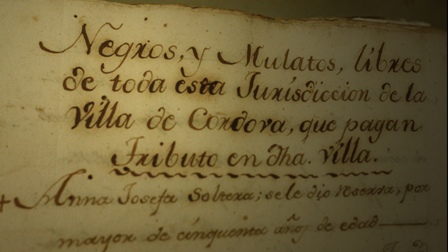 Negros, y Mulatos, libres
de toda esta Jurisdiccion de la
Villa de Cordova, que pagan
Tributo en dha. Villa.
+ Anna Josefa Soltera; sele dio reserva, por
mayor de cinquenta años de edad